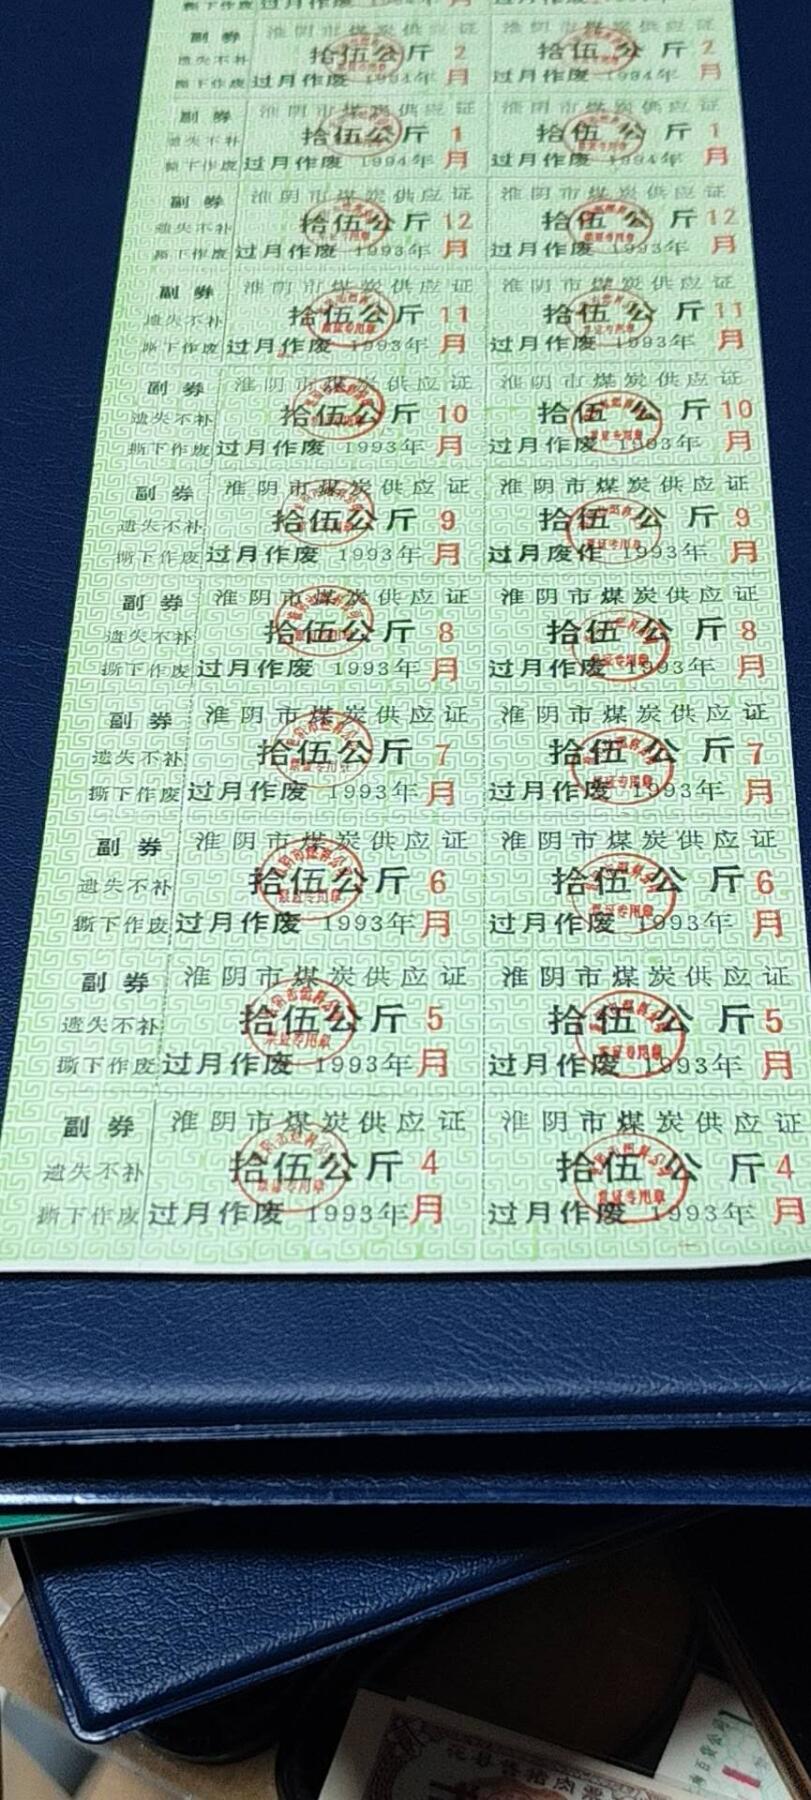 撕下作废 过月作废 1994年 月 过月作废 1994年 月
副券 淮阴市煤炭供应证 淮阴市煤炭供应证
遗失不补 拾伍公斤 2 拾伍公斤 2
撕下作废 过月作废 1994年 月 过月作废 1994年 月
副券 淮阴市煤炭供应证 淮阴市煤炭供应证
遗失不补 拾伍公斤 1 拾伍公斤 1
撕下作废 过月作废 1994年 月 过月作废 1994年 月
副券 淮阴市煤炭供应证 淮阴市煤炭供应证
遗失不补 拾伍公斤 12 拾伍公斤 12
撕下作废 过月作废 1993年 月 过月作废 1993年 月
副券 淮阴市煤炭供应证 淮阴市煤炭供应证
遗失不补 拾伍公斤 11 拾伍公斤 11
撕下作废 过月作废 1993年 月 过月作废 1993年 月
副券 淮阴市煤炭供应证 淮阴市煤炭供应证
遗失不补 拾伍公斤 10 拾伍公斤 10
撕下作废 过月作废 1993年 月 过月作废 1993年 月
副券 淮阴市煤炭供应证 淮阴市煤炭供应证
遗失不补 拾伍公斤 9 拾伍公斤 9
撕下作废 过月作废 1993年 月 过月废作 1993年 月
副券 淮阴市煤炭供应证 淮阴市煤炭供应证
遗失不补 拾伍公斤 8 拾伍公斤 8
撕下作废 过月作废 1993年 月 过月作废 1993年 月
副券 淮阴市煤炭供应证 淮阴市煤炭供应证
遗失不补 拾伍公斤 7 拾伍公斤 7
撕下作废 过月作废 1993年 月 过月作废 1993年 月
副券 淮阴市煤炭供应证 淮阴市煤炭供应证
遗失不补 拾伍公斤 6 拾伍公斤 6
撕下作废 过月作废 1993年 月 过月作废 1993年 月
副券 淮阴市煤炭供应证 淮阴市煤炭供应证
遗失不补 拾伍公斤 5 拾伍公斤 5
撕下作废 过月作废 1993年 月 过月作废 1993年 月
副券 淮阴市煤炭供应证 淮阴市煤炭供应证
遗失不补 拾伍公斤 4 拾伍公斤 4
撕下作废 过月作废 1993年 月 过月作废 1993年 月
票证专用章
百货公司